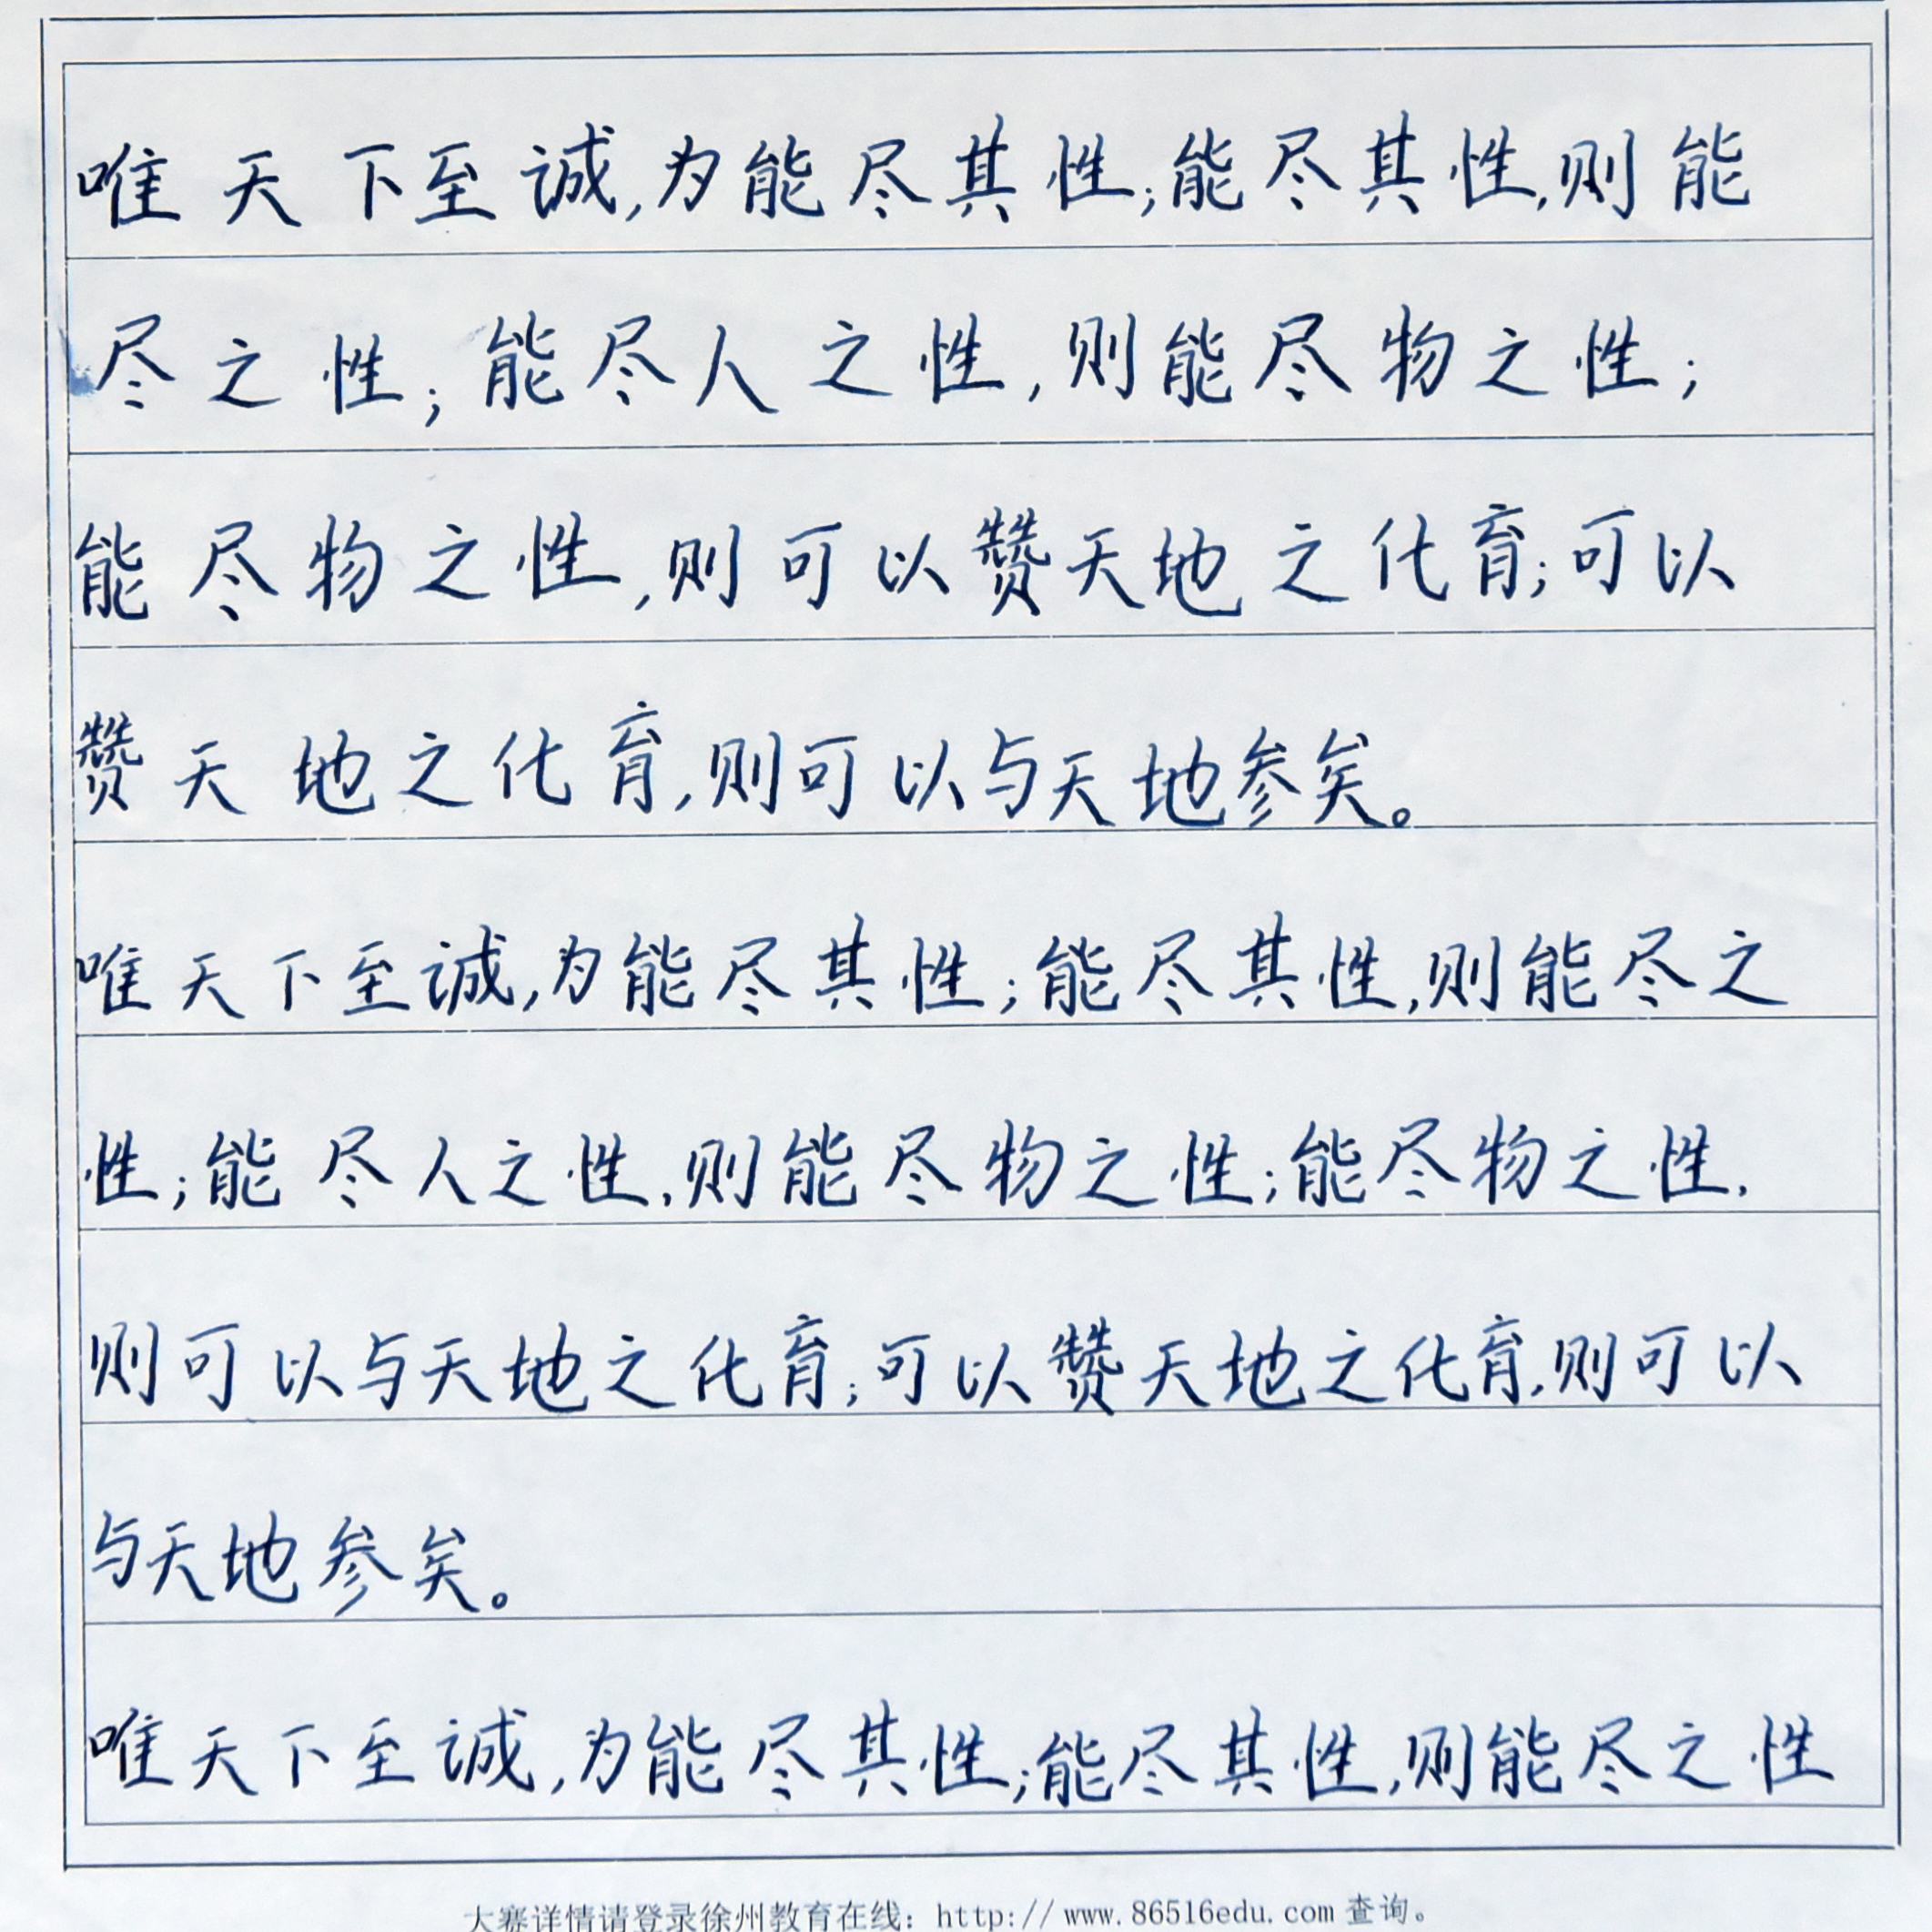 唯天下至诚,为能尽其性;能尽其性,则能
尽之性;能尽人之性,则能尽物之性;
能尽物之性,则可以赞天地之化育;可以
赞天地之化育,则可以与天地参矣。
唯天下至诚,为能尽其性;能尽其性,则能尽之
性;能尽人之性,则能尽物之性;能尽物之性,
则可以与天地之化育;可以赞天地之化育,则可以
与天地参矣。
唯天下至诚,为能尽其性;能尽其性,则能尽之性
大赛详情请登录徐州教育在线：http://www.86516edu.com查询。